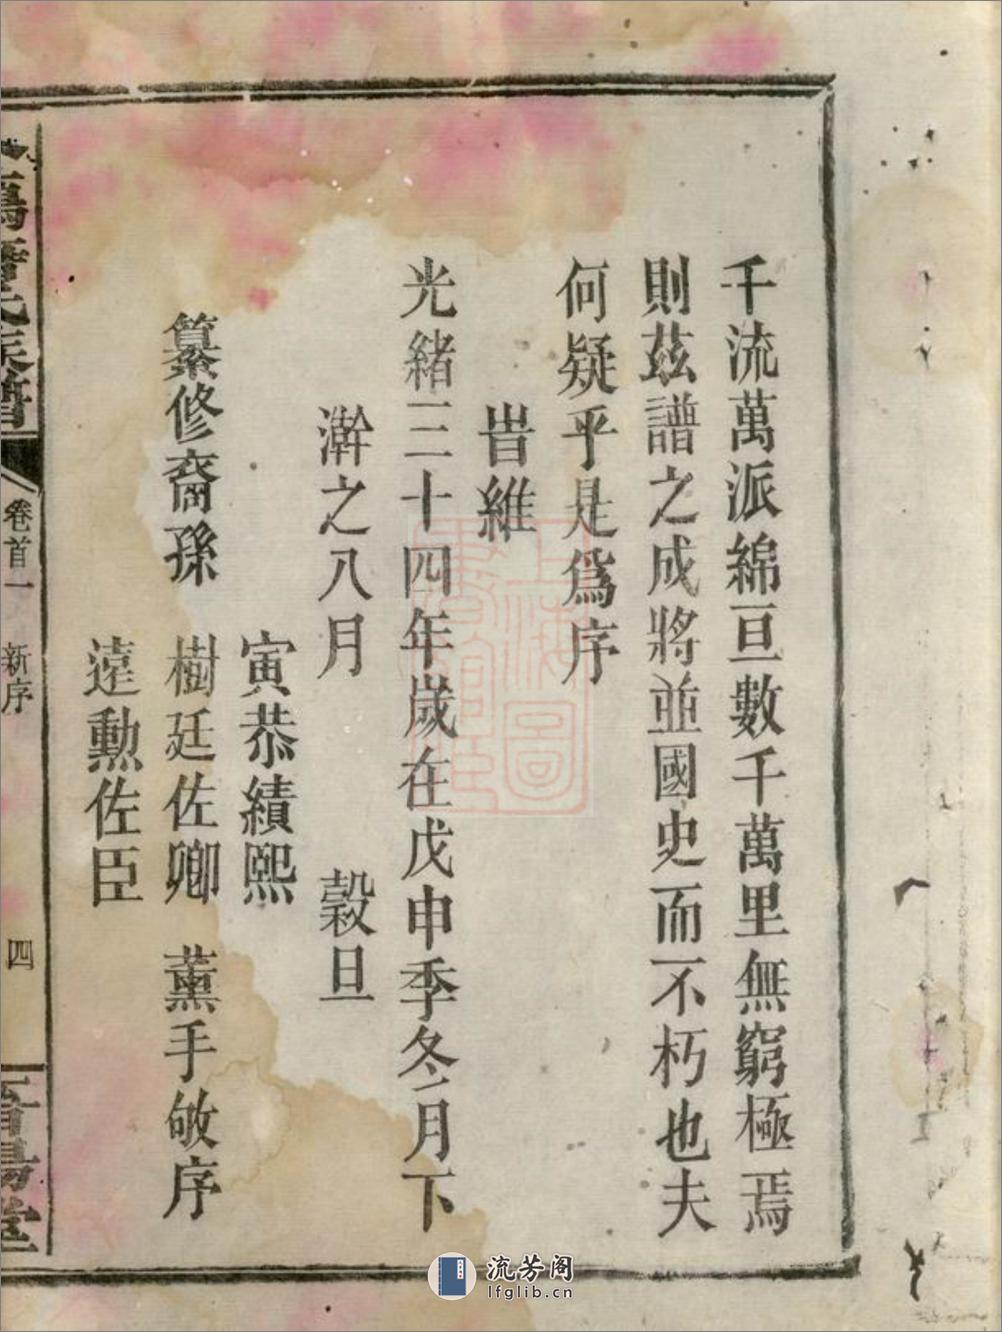 千流萬派綿亘數千萬里無窮極焉
則茲譜之成將並國史而不朽也夫
何疑乎是爲序
旹維
光緒三十四年歲在戊申季冬月下
澣之八月 穀旦
寅恭績熙
纂修裔孫 樹廷佐卿 薰手敬序
遠勳佐臣
氏族譜 卷首一 新序 四 堂
上海圖書館藏
流芳阁
lfglib.cn